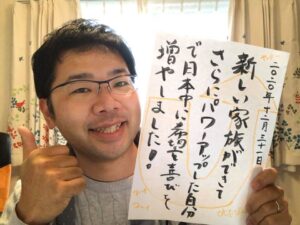 二〇二〇年十二月三十一日
新しい家族ができて
さらにパワーアップした自分
で日本中に希望と喜びを
増やしました!